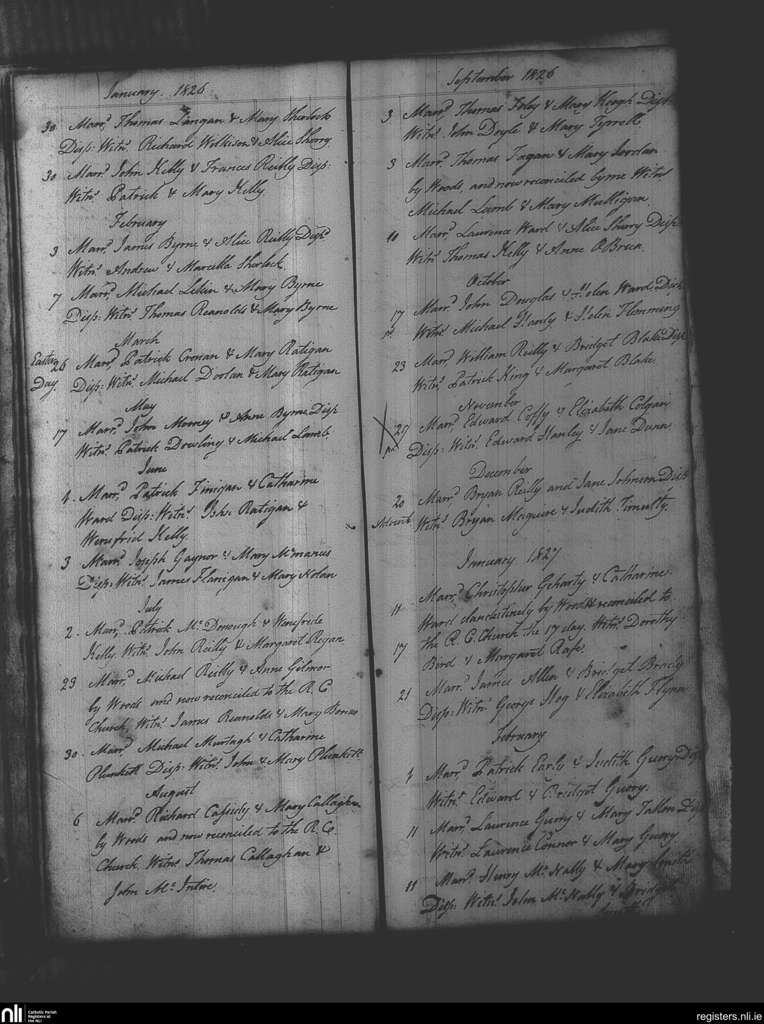 January 1826
30 Marrd Thomas Langan & Mary Sherlock
Disp: Witns Richard Wilkison & Alice Sherry
30 Marrd John Kelly & Frances Reilly Disp:
Witns Patrick & Mary Kelly
February
3 Marrd James Byrne & Alice Reilly Disp
Witns Andrew & Marcella Sherlock
7 Marrd Michael & Mary Byrne
Disp: Witns Thomas Reanolds & Mary Byrne
March
Easter Day 26 Marrd Patrick Cronan & Mary Ratigan
Disp: Witns Michael Doolan & Mary Ratigan
May
17 Marrd John Mooney & Anne Byrne Disp
Witns Patrick Dowling & Michael Lamb
June
4 Marrd Patrick Finigan & Catharine
Ward Disp: Witns Ratigan &
Winefrid Kelly
3 Marrd Joseph Gaynor & Mary McManus
Disp: Witns James Flanigan & Mary Nolan
July
2 Marrd Patrick McDonough & Winefride
Kelly. Witns John Reilly & Margaret Regan
23 Marrd Michael Reilly & Anne Gilmor
by Woods and now reconciled to the R. C
Church, Witns James Reanolds & Mary
30 Marrd Michael Murtagh & Catharine
Plunkett Disp: Witns John & Mary Plunkett
August
6 Marrd Richard Cassidy & Mary Callaghan
by Woods and now reconciled to the R. C.
Church. Witns Thomas Callaghan &
John McIntire.
September 1826
3 Marrd Thomas Foley & Mary Keogh Disp
Witns John Doyle & Mary Tyrrell
3 Marrd Thomas Fagan & Mary Jordan
by Woods, and now reconciled by me Witns
Michael Lamb & Mary Mulligan
10 Marrd Laurence Ward & Alice Sherry Disp
Witns Thomas Kelly & Anne O'Brien.
October
17 Marrd John Douglas & Helen Ward Disp
Witns Michael Hanly & Helen Flemming
23 Marrd William Reilly & Bridget Blake Disp
Witns Patrick King & Margaret Blake.
November
27 Marrd Edward Coffy & Elizabeth Colgan
Disp: Witns Edward Hanley & Jane Dunn
December
20 Marrd Bryan Reilly and Jane Johnson Disp
Advent Witns Bryan Maguire & Judith Timulty.
January 1827
11 Marrd Christopher Geharty & Catharine
Ward clandestinely by Woods & reconciled to
17 the R. C. Church the 17 day. Witns Dorothy
Bird & Margaret Rafe.
21 Marrd James Allen & Bridget Brady
Disp: Witns George Hog & Elizabeth Flynn
February
1 Marrd Patrick Early & Judith Guery Disp
Witns Edward & Bridget Guery.
11 Marrd Laurence Guery & Mary Fallon Disp
Witns Laurence Connor & Mary Guery
11 Marrd Henry McNally & Mary Smith
Disp: Witns John McNally & Bridget
nli
Catholic Parish
Registers at
the NLI
registers.nli.ie